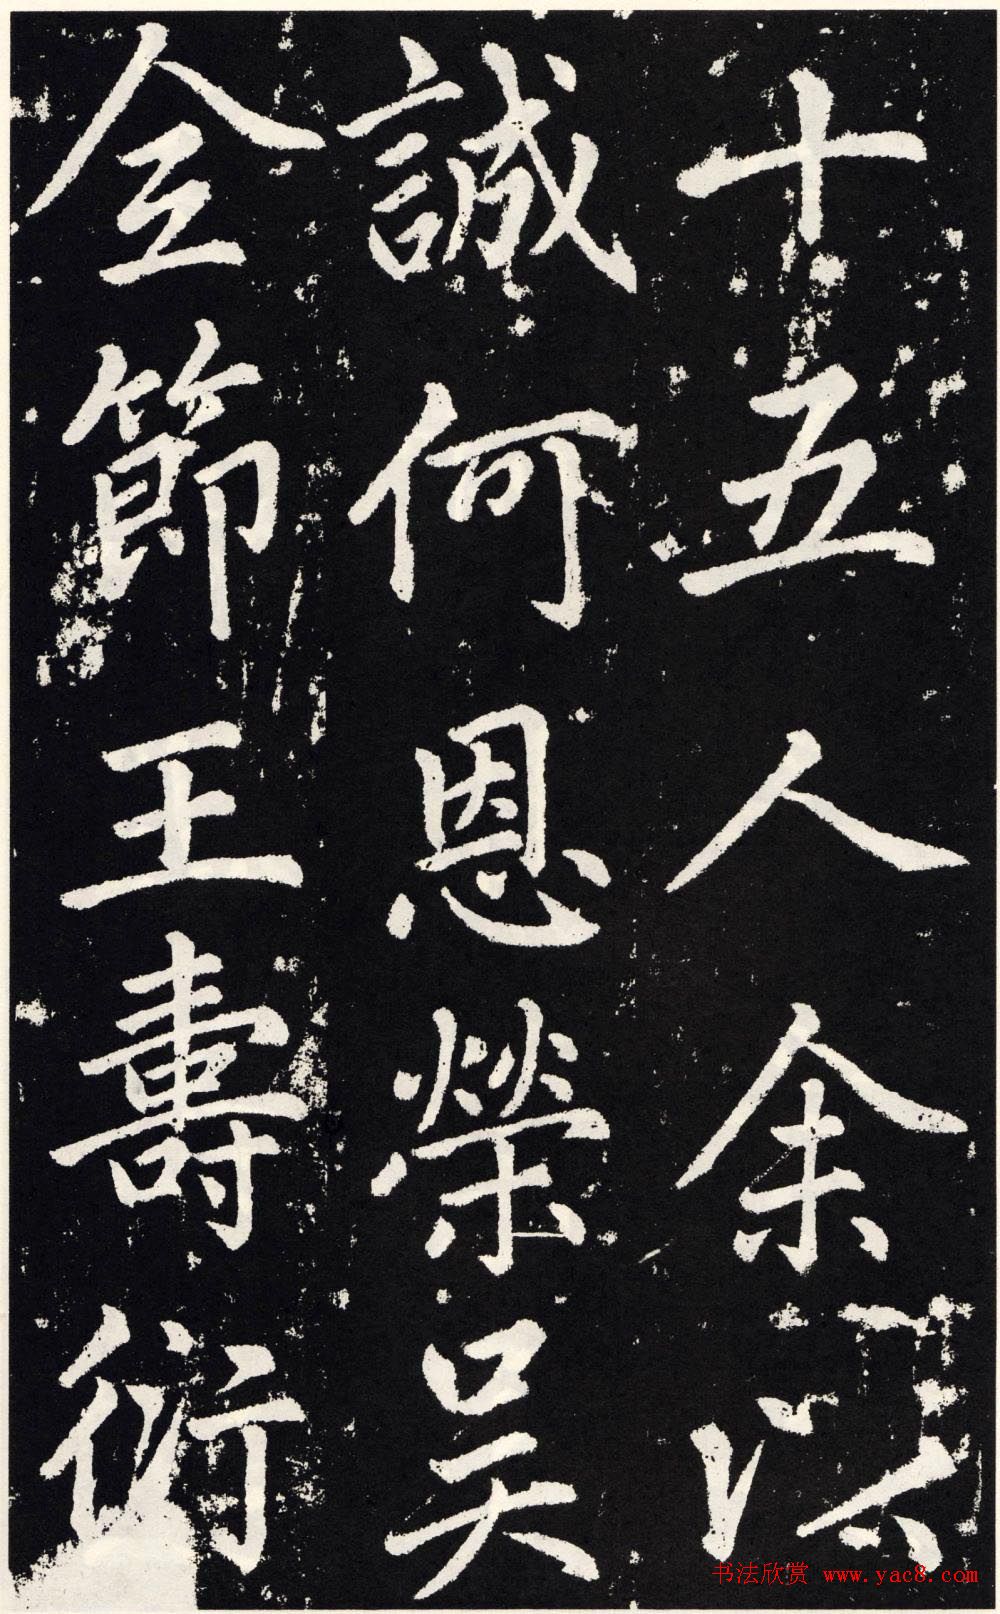 十五人余以
誠何恩榮吳
全節王壽衍
书法欣赏 www.yac8.com